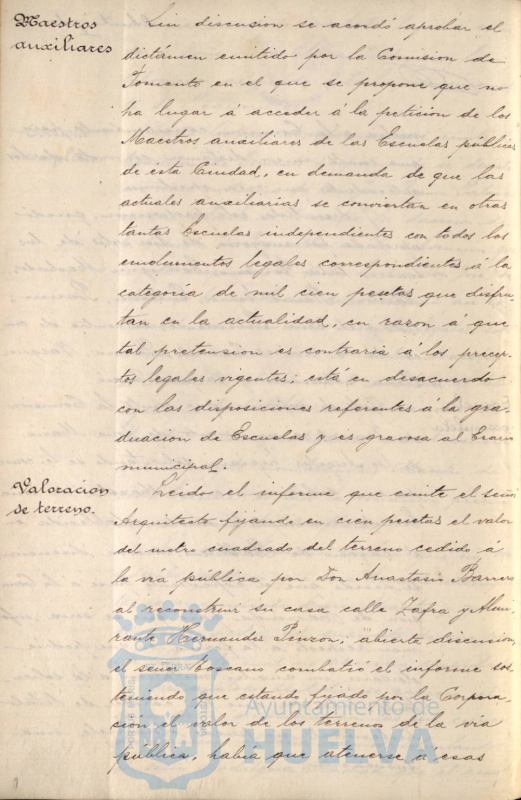 Maestros
auxiliares
Sin discusion se acordó aprobar el
dictámen emitido por la Comision de
Fomento en el que se propone que no
ha lugar á acceder á la peticion de los
Maestros auxiliares de las Escuelas públicas
de esta Ciudad, en demanda de que las
actuales auxiliarias se conviertan en otras
tantas Escuelas independientes con todos los
emolumentos legales correspondientes á la
categoría de mil cien pesetas que disfru-
tan en la actualidad, en razon á que
tal pretension es contraria á los precep-
tos legales vigentes; está en desacuerdo
con las disposiciones referentes á la gra-
duacion de Escuelas y es gravosa al Erario
municipal.
Valoracion
de terreno.
Leido el informe que emite el señor
Arquitecto fijando en cien pesetas el valor
del metro cuadrado del terreno cedido á
la vía pública por Don Anastasio Barrero
al reconstruir su casa calle Zafra y Almi-
rante Hernandez Pinzon; abierta discusion,
el señor Toscano combatió el informe sos-
teniendo que estando fijado por la Corpora-
ción el valor de los terrenos de la vía
pública, habia que atenerse á esas
Ayuntamiento de
HUELVA